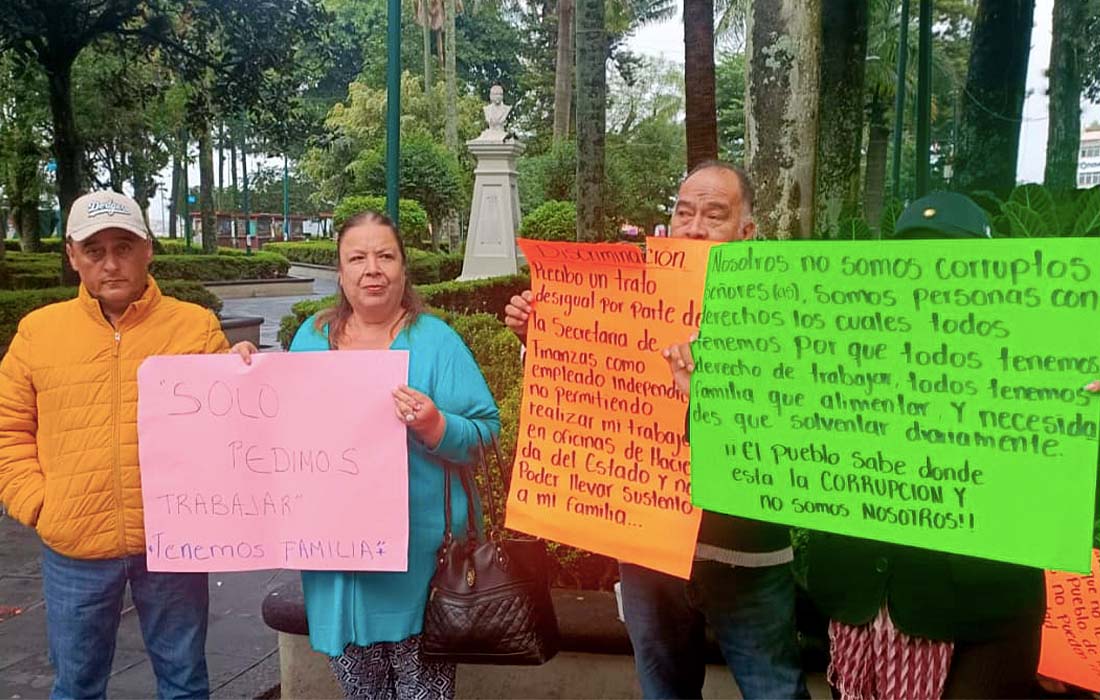 Dodgers
"SOLO
PEDIMOS
TRABAJAR"
"Tenemos FAMILIA"
Discriminacion
Recibo un trato
desigual por parte de
la Secretaria de
Finanzas como
empleado Independi
no permitiendo
realizar mi trabajo
en oficinas de Hacie
da del Estado y no
Poder llevar sustento
a mi familia...
Nosotros no somos corruptos
Señores(as), somos personas con
derechos los cuales todos
tenemos por que todos tenemos
derecho de trabajar, todos tenemos
familia que alimentar y necesida
des que solventar diariamente.
¡¡El Pueblo Sabe donde
esta la CORRUPCION Y
no somos NOSOTROS!!
que no
Pueblo
no pueden